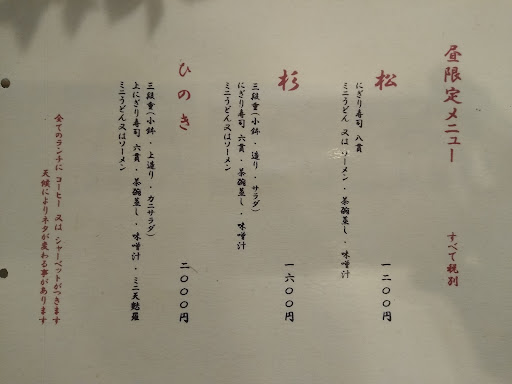 昼限定メニュー すべて税別
松 一二〇〇円
にぎり寿司 八貫
ミニうどん 又は ソーメン・茶碗蒸し・味噌汁
杉 一六〇〇円
三段重(小鉢・造り・サラダ)
にぎり寿司 六貫・茶碗蒸し・味噌汁
ミニうどん又はソーメン
ひのき 二〇〇〇円
三段重(小鉢・上造り・カニサラダ)
上にぎり寿司 六貫・茶碗蒸し・味噌汁・ミニ天麩羅
ミニうどん又はソーメン
全てのランチに コーヒー 又は シャーベットがつきます
天候によりネタが変わる事があります